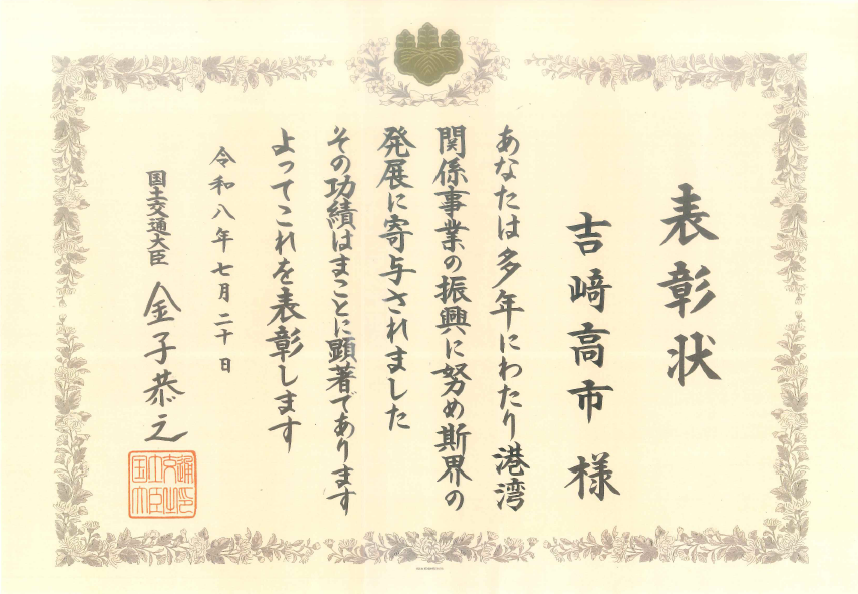 表彰状
吉﨑高市 様
あなたは多年にわたり港湾
関係事業の振興に努め斯界の
発展に寄与されました
その功績はまことに顕著であります
よってこれを表彰します
令和八年七月二十日
国土交通大臣 金子恭之
国土交通
大臣之印